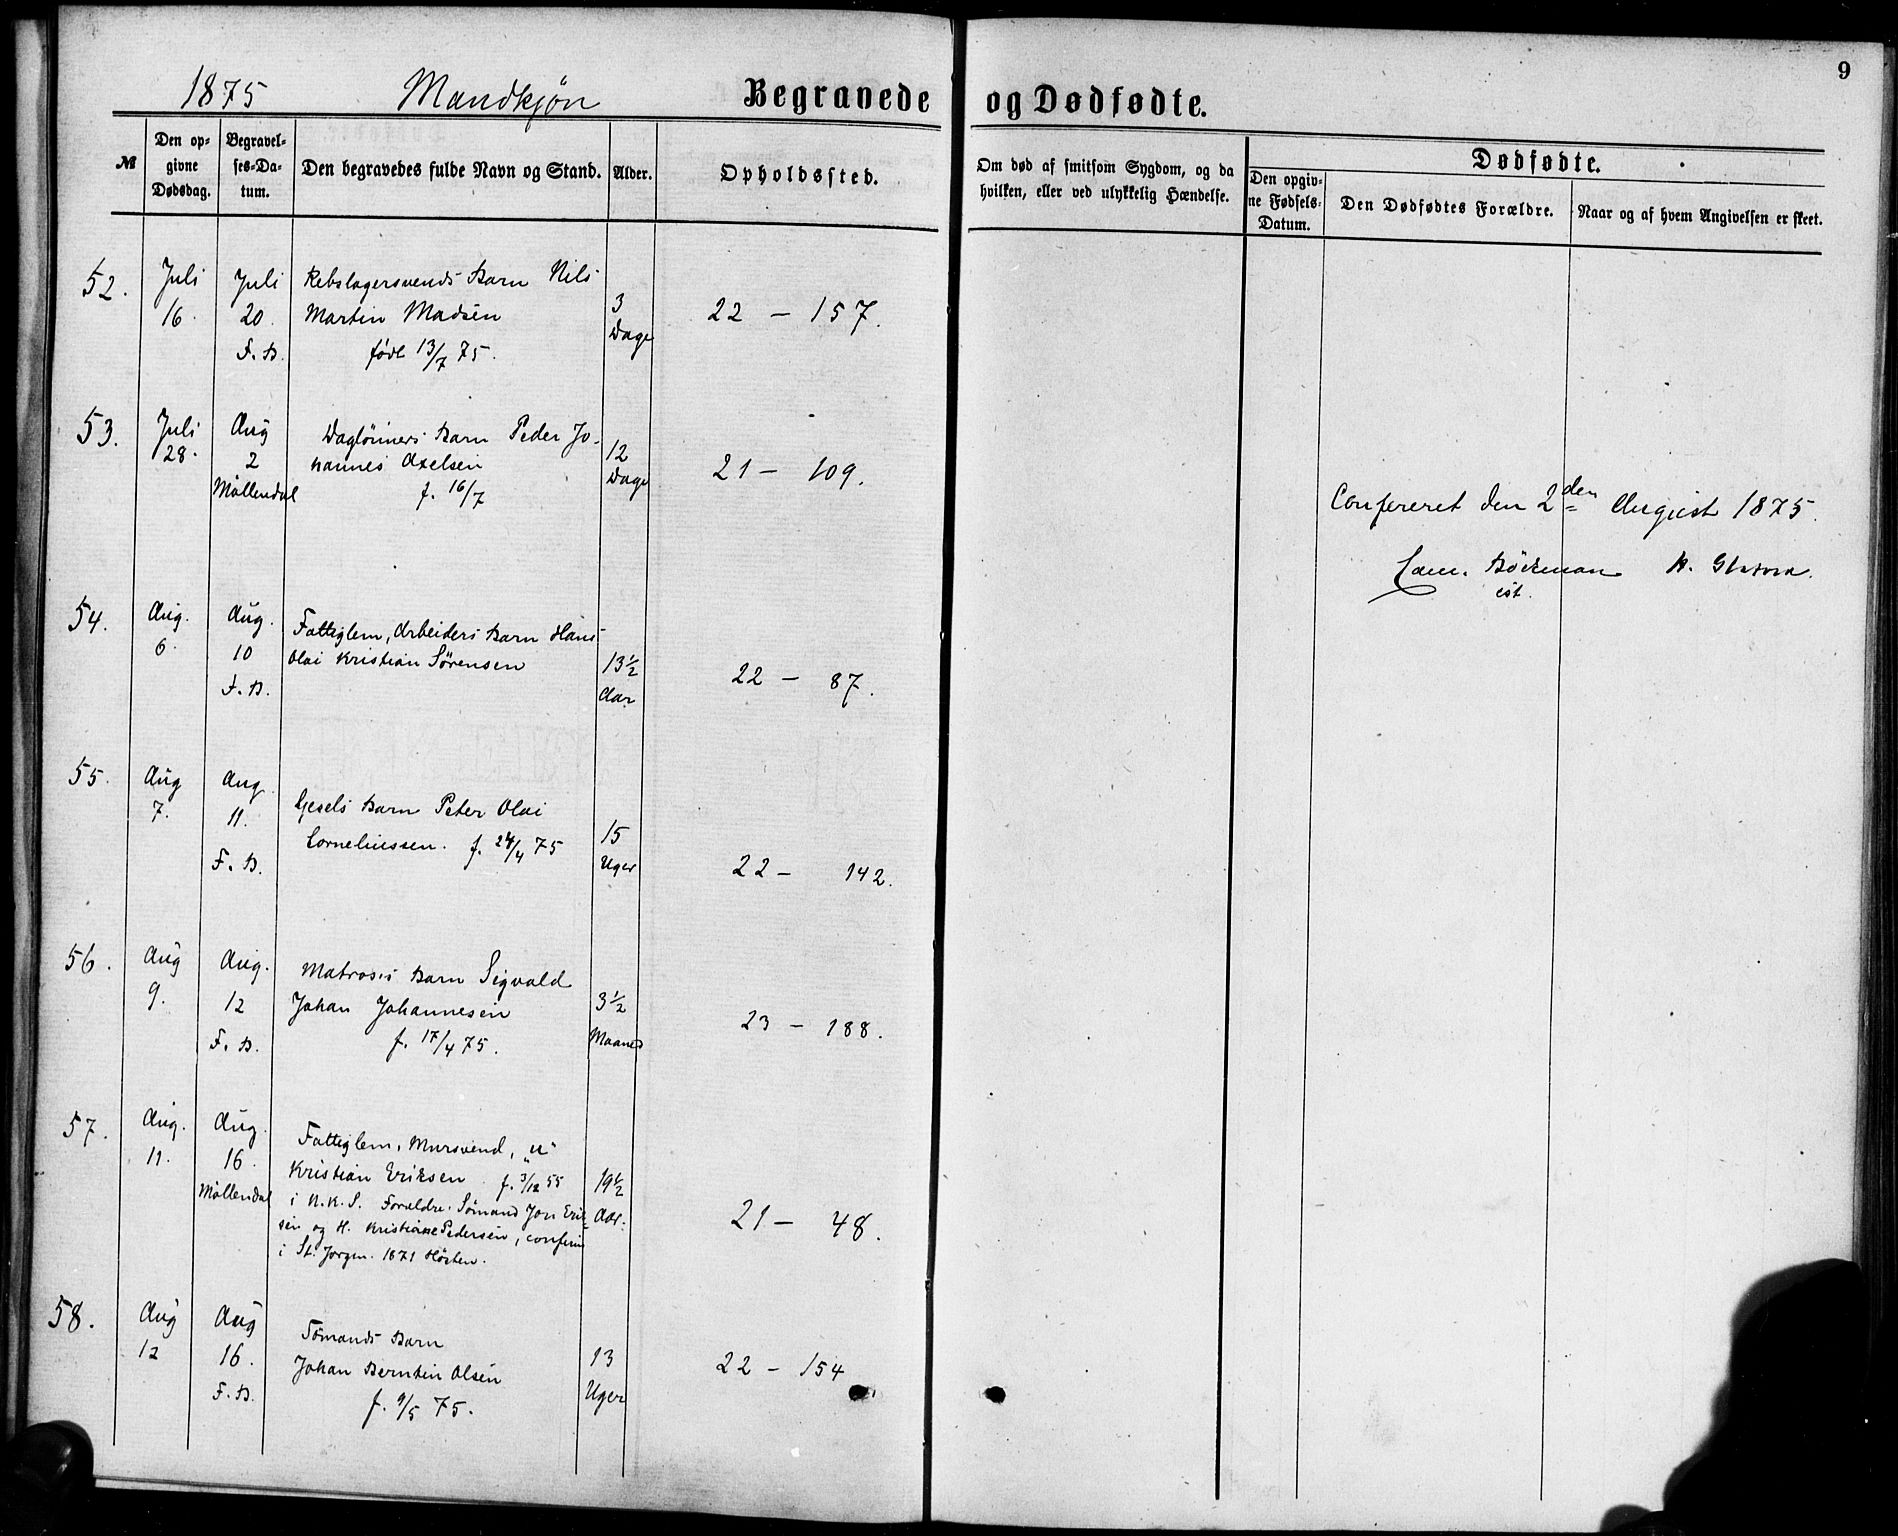 9
1875 Mandkjøn Begravede og Dødfødte.
№
Den op=
givne
Dødsdag.
Begravel=
ses=Da=
tum.
Den begravedes fulde Navn og Stand.
Alder.
Opholdssted.
Om død af smitsom Sygdom, og da
hvilken, eller ved ulykkelig Hændelse.
Dødfødte.
Den opgiv=
ne Fødsels=
Datum.
Den Dødfødtes Forældre.
Naar og af hvem Angivelsen er skeet.
52.
Juli
16.
Juli
20.
F. B.
Rebslagersvends Barn Nils
Martin Madsen
født 13/7 75.
3
Dage
22 - 157.
53.
Juli
28.
Aug
2
Møllendal
Daglönners Barn Peder Jo-
hannes Axelsen
f. 16/7
12
Dage
21 - 109.
Confereret den 2den August 1875.
Böckman
54.
Aug.
6.
Aug.
10
F. B.
Fattiglem, Arbeiders Barn Hans
Olai Kristian Sörensen
13½
Aar
22 - 87.
55.
Aug
7.
Aug.
11.
F. B.
Gesels Barn Peter Olai
Corneliussen. f. 24/4 75
15
Uger
22 - 142.
56.
Aug
9.
Aug.
12
F. B.
Matroses Barn Sigvald
Johan Johannesen
f. 17/4 75.
3½
Maaned
23 - 188.
57.
Aug.
11.
Aug.
16.
Møllendal
Fattiglem, Mursvend, „u"
Kristian Eriksen. f. 3/12 55
i N.K.S. Forældre: Sømand Jon Erik-
sen og H. Kristiane Pedersen, confirm
i St. Jørgen. 1871 Høsten.
19½
Aar.
21 - 48.
58.
Aug
12
Aug
16.
F. B.
Sömands Barn
Johan Berntin Olsen
f. 9/5 75.
13
Uger
22 - 154